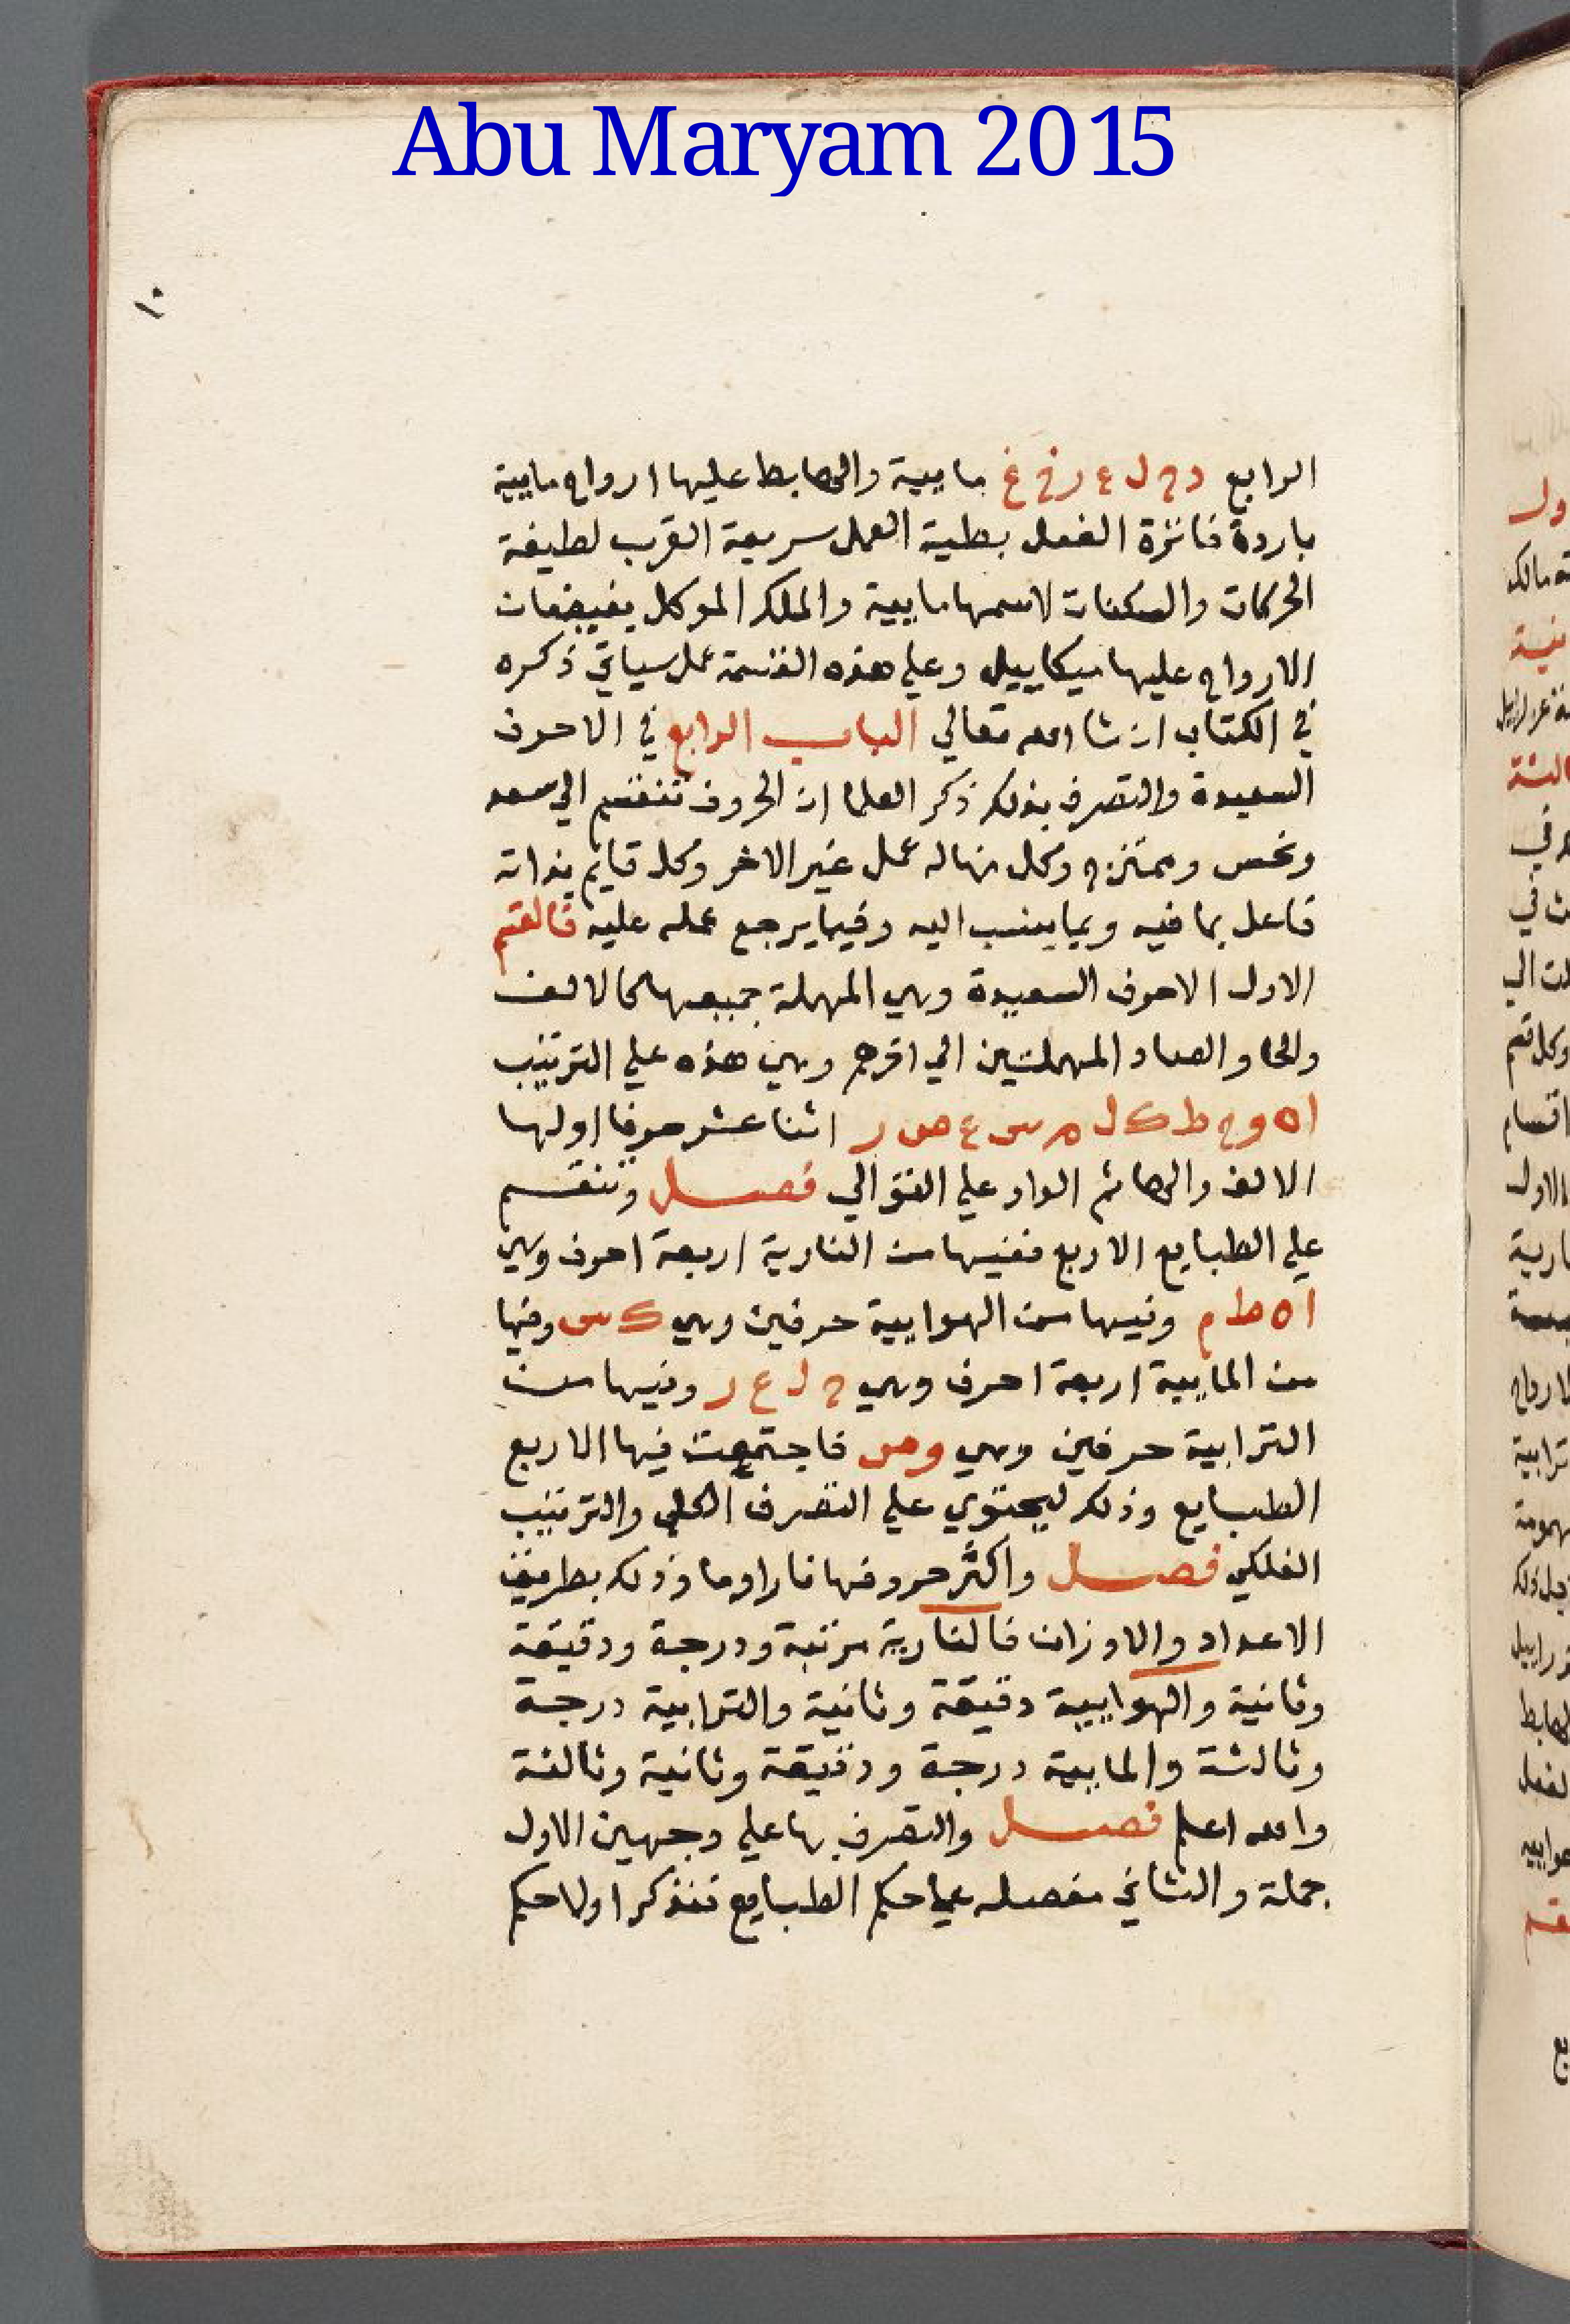 Abu Maryam 2015
١٠
الرابع د ح ل ع ر خ غ مايية والهابط عليها ارواح مايية
باردة فاترة الفعل بطية العمل سريعة القرب لطيفة
الحركات والسكنات لاسمها مايية والملك الموكل بفيضات
الارواح عليها ميكاييل وعلي هذه القسمة عمل سياتي ذكره
في الكتاب ان شا الله تعالي الباب الرابع في الاحرف
السعيدة والتصرف بذلك ذكر العلما ان الحروف تنقسم الي سعد
ونحس وممتزج وكل منها له عمل غير الاخر وكل قايم بذاته
فاعل بما فيه وبما ينسب اليه وفيما يرجع عمله عليه فالقسم
الاول الاحرف السعيدة وهي المهملة جميعها كالالف
والحا والصاد المهملتين الي اخرهم وهي هذه علي الترتيب
ا ه و ح ط ك ل م س ع ص ر اثنا عشر حرفا اولها
الالف والها ثم الواو علي التوالي فصل وتنقسم
علي الطبايع الاربع ففيها من النارية اربعة احرف وهي
ا ه ط م وفيها من الهوايية حرفين وهي ك س وفيها
من المايية اربعة احرف وهي ح ل ع ر وفيها من
الترابية حرفين وهي و ص فاجتمعت فيها الاربع
الطبايع وذلك ليحتوي علي التصرف الكلي والترتيب
الفلكي فصل واكثر حروفها نارا وما وذلك بطريق
الاعداد والاوزان فالنارية مرتبة ودرجة ودقيقة
وثانية والهوايية دقيقة وثانية والترابية درجة
وثالثة والمايية درجة ودقيقة وثانية وثالثة
والله اعلم فصل والتصرف بها علي وجهين الاول
جملة والثاني مفصله علي حكم الطبايع فنذكر اولا حكم